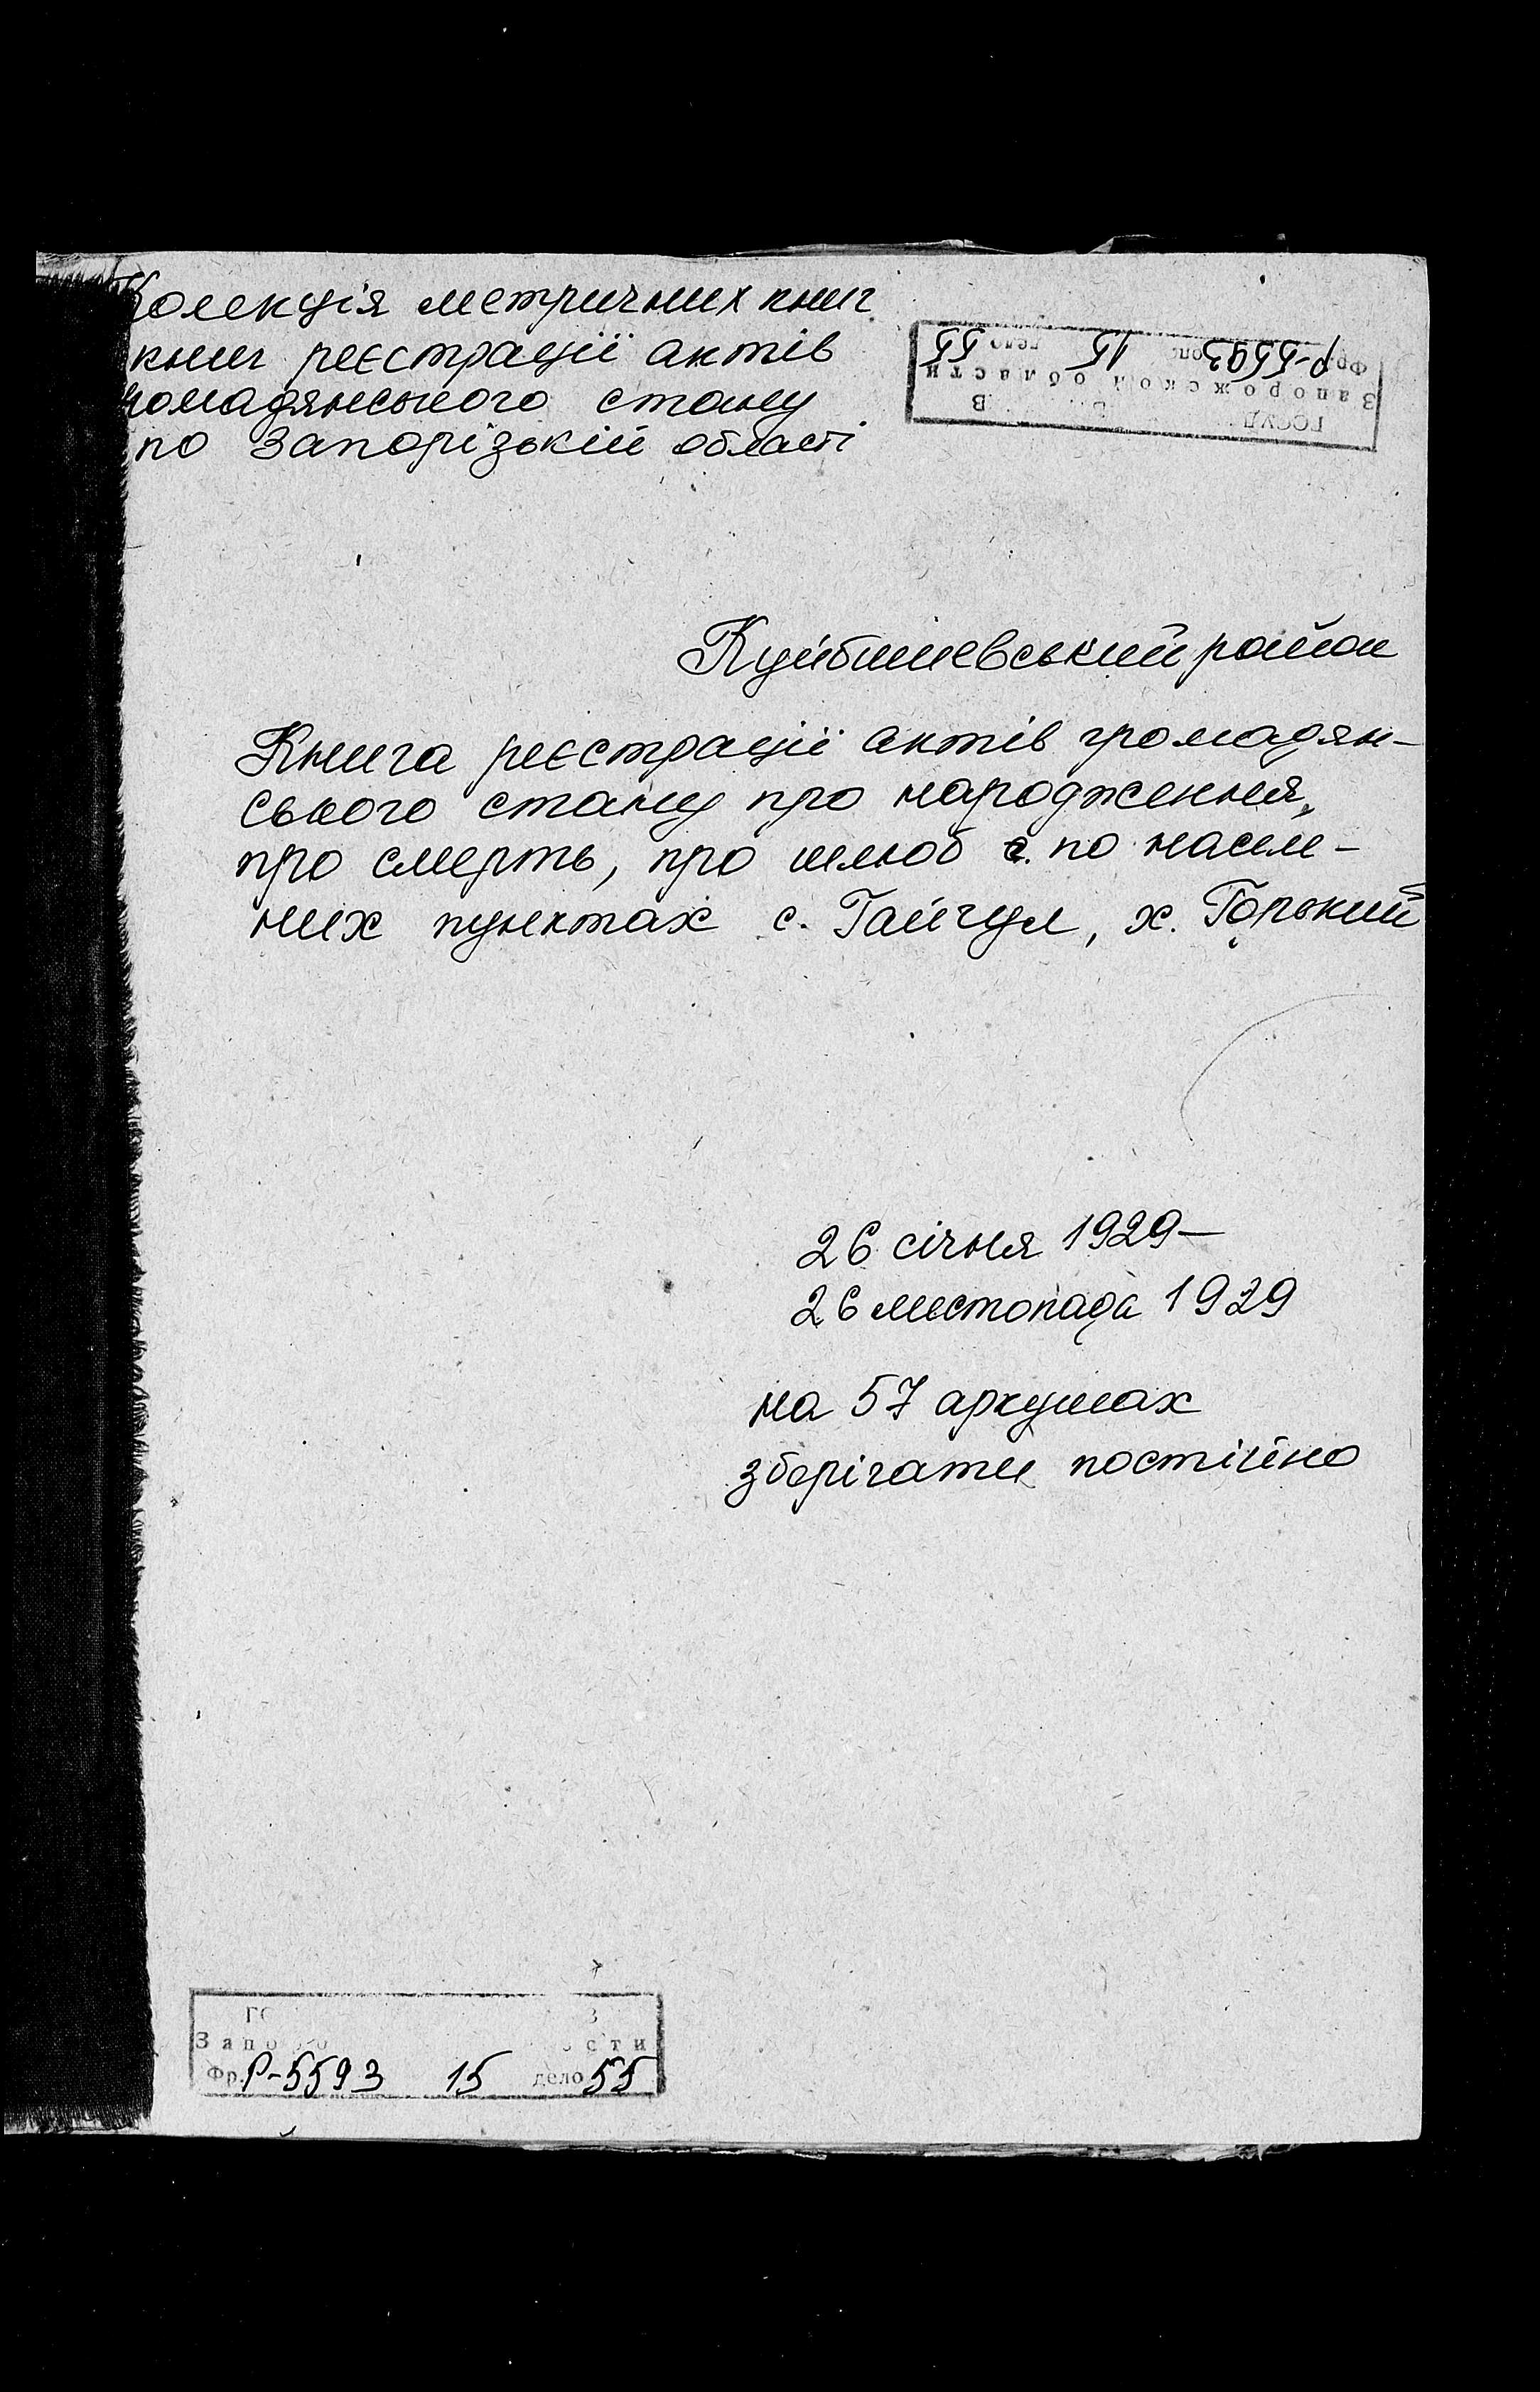 Колекція метричних книг
книг реєстрації актів
громадянського стану
по Запорізькій області
ГОСУД
Запорожской области
Фр. Р-5593 оп. 15 дело 55
Куйбишевський район
Книга реєстрації актів громадян-
ського стану про народження,
про смерть, про шлюб с. по населе-
них пунктах с. Гайчул, х. Горький
26 січня 1929—
26 листопада 1929
на 57 аркушах
зберігати постійно
Фр. Р-5593 15 дело 55